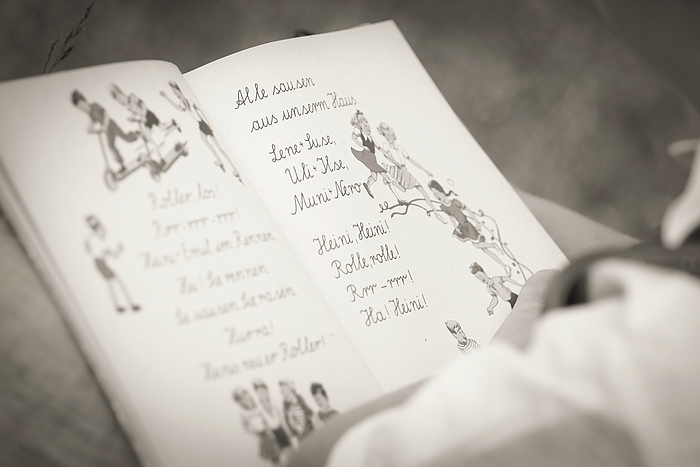 Roller, los!
Rrr-rrr-rrr!
Heini + Emil im Rennen
Ha! Sie rennen
Sie sausen Sie rasen
Hurra!
Heinis neuer Roller!
Alle sausen
aus unserm Haus
Lene + Suse,
Uli + Ilse,
Muni + Nero
Heini, Heini!
Rolle, rolle!
Rrr-rrr!
Ha! Heini!